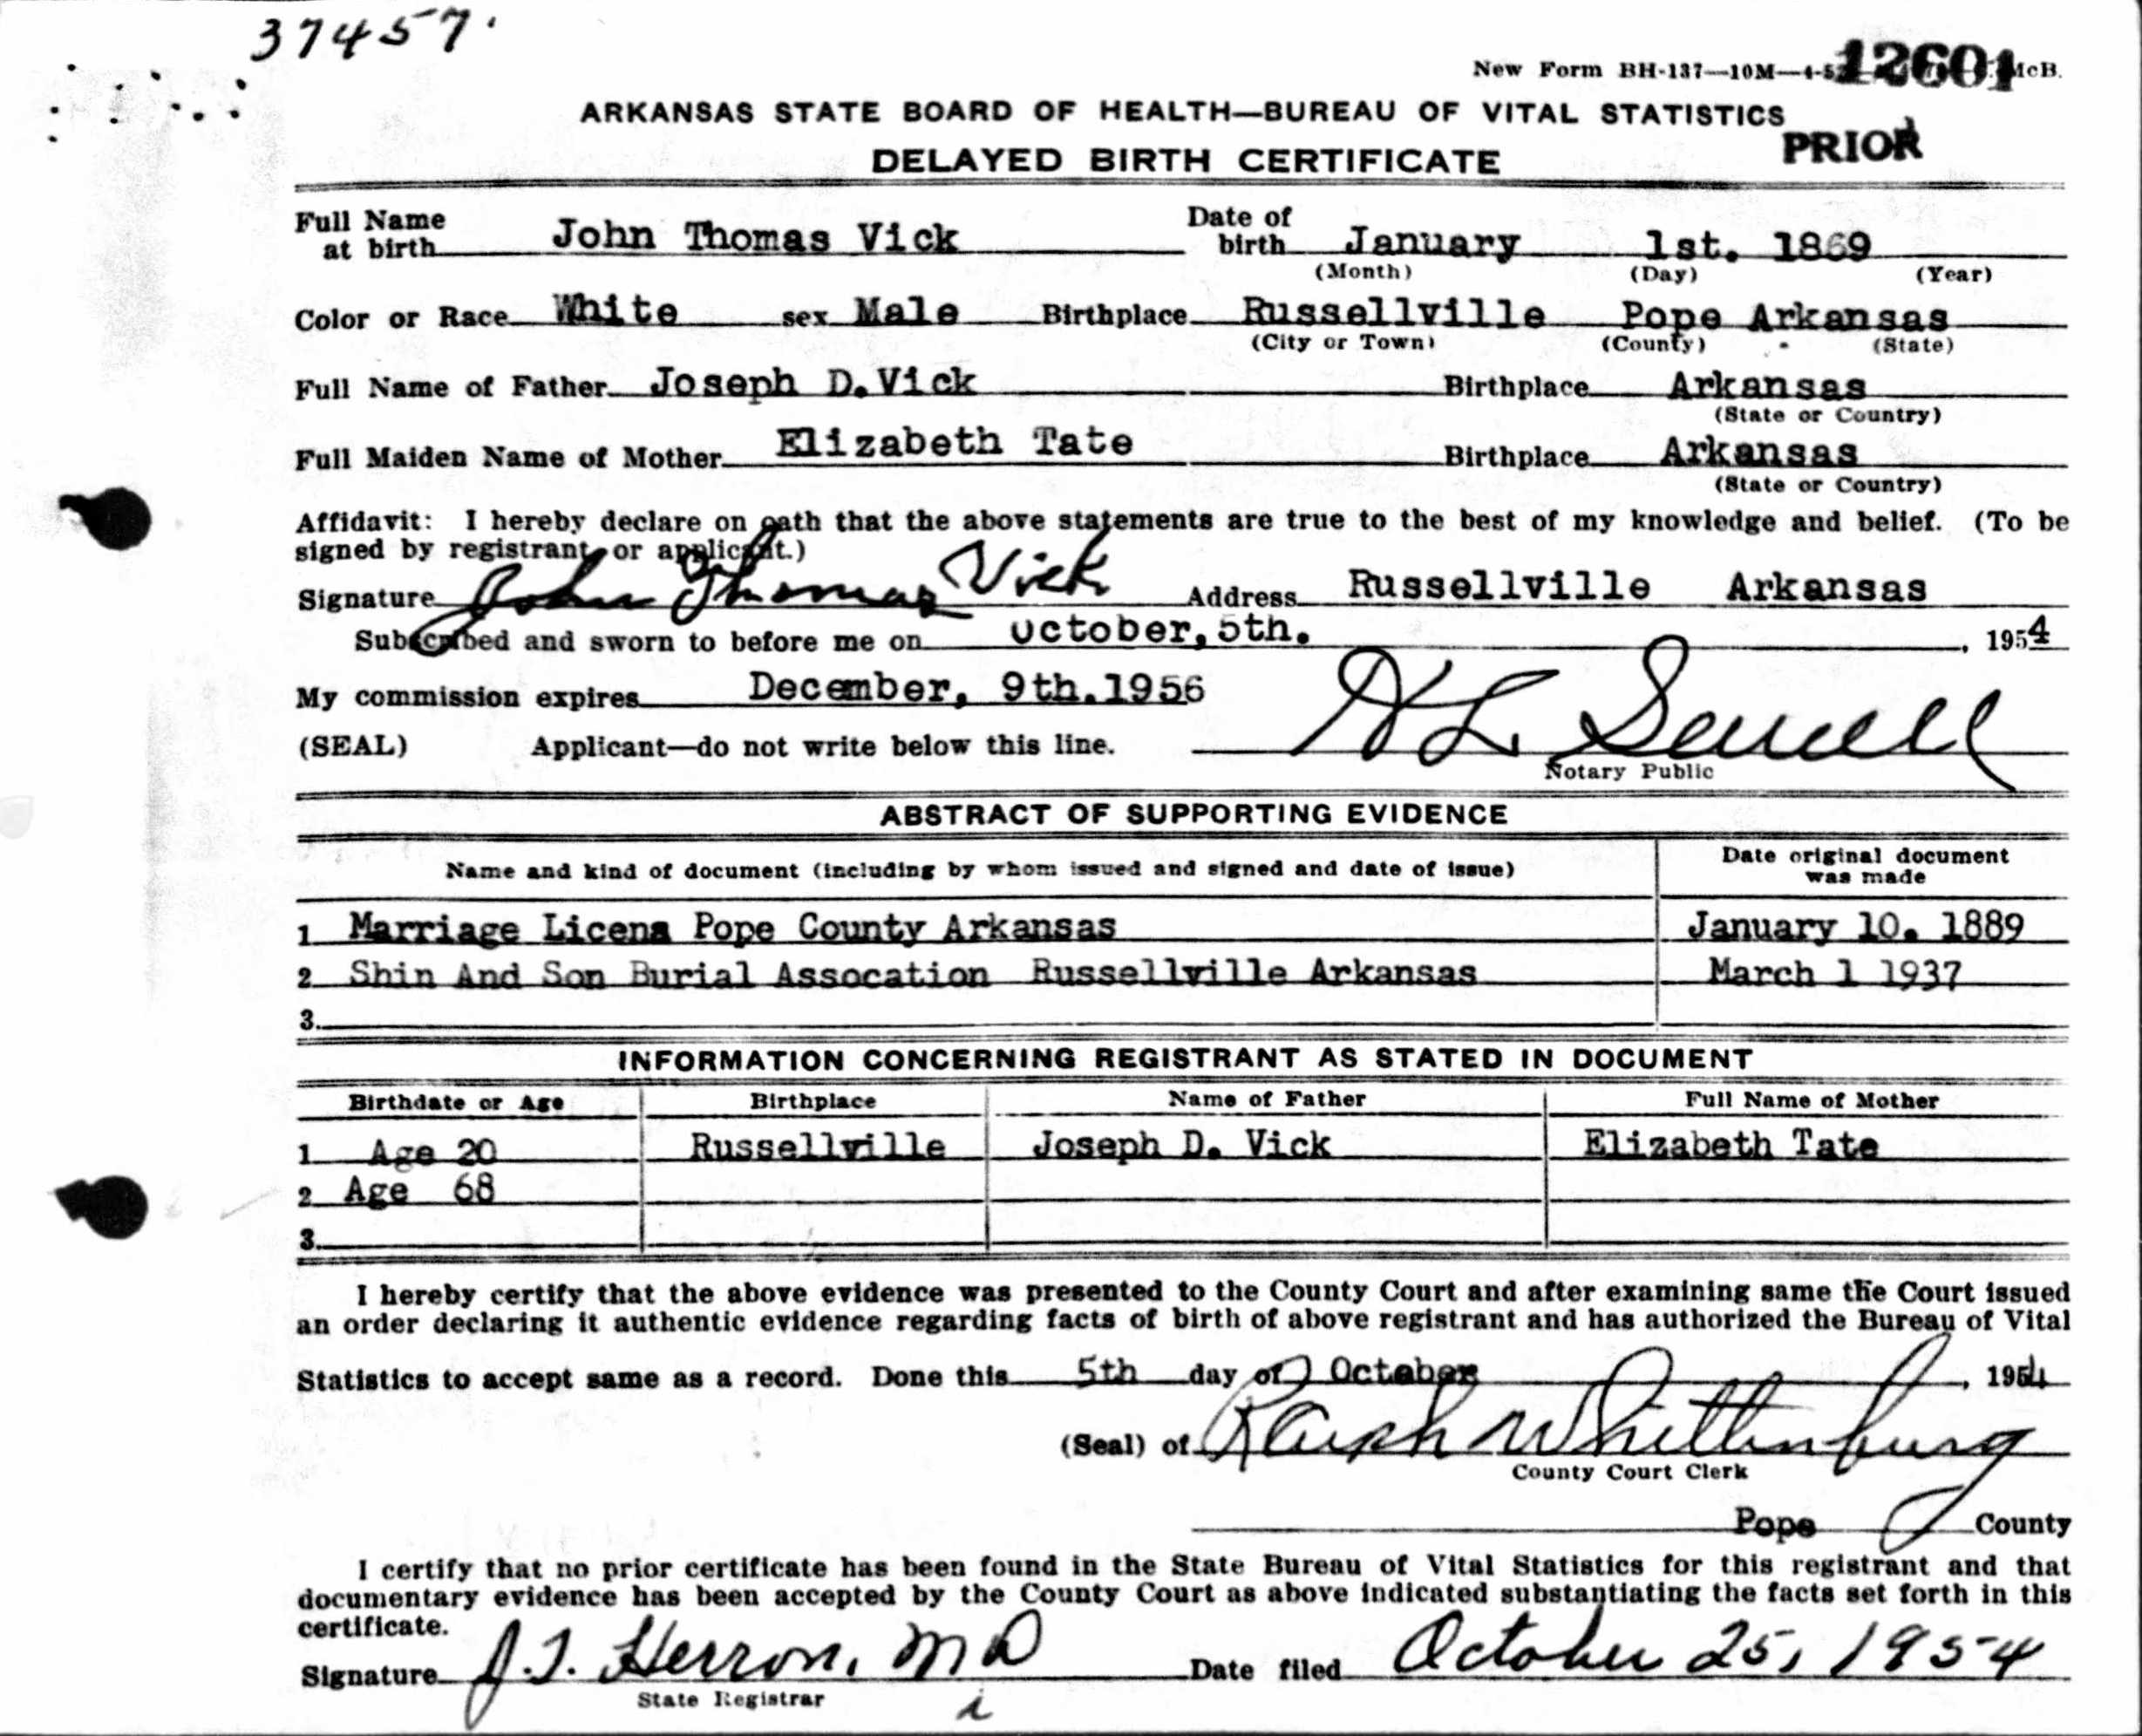 37457.
New Form BH-137—10M—4-5 12601 McB.
ARKANSAS STATE BOARD OF HEALTH—BUREAU OF VITAL STATISTICS
PRIOR
DELAYED BIRTH CERTIFICATE
Full Name at birth John Thomas Vick Date of birth January 1st. 1869
(Month) (Day) (Year)
Color or Race White sex Male Birthplace Russellville Pope Arkansas
(City or Town) (County) (State)
Full Name of Father Joseph D. Vick Birthplace Arkansas
(State or Country)
Full Maiden Name of Mother Elizabeth Tate Birthplace Arkansas
(State or Country)
Affidavit: I hereby declare on oath that the above statements are true to the best of my knowledge and belief. (To be
signed by registrant or applicant.)
Signature John Thomas Vick Address Russellville Arkansas
Subscribed and sworn to before me on October, 5th. , 1954
My commission expires December, 9th. 1956
(SEAL) Applicant—do not write below this line.
Notary Public
ABSTRACT OF SUPPORTING EVIDENCE
Name and kind of document (including by whom issued and signed and date of issue) Date original document was made
1 Marriage Licens Pope County Arkansas January 10. 1889
2 Shin And Son Burial Assocation Russellville Arkansas March 1 1937
3.
INFORMATION CONCERNING REGISTRANT AS STATED IN DOCUMENT
Birthdate or Age Birthplace Name of Father Full Name of Mother
1 Age 20 Russellville Joseph D. Vick Elizabeth Tate
2 Age 68
3.
I hereby certify that the above evidence was presented to the County Court and after examining same the Court issued
an order declaring it authentic evidence regarding facts of birth of above registrant and has authorized the Bureau of Vital
Statistics to accept same as a record. Done this 5th day of October , 1954
(Seal) of Ralph Whittenburg
County Court Clerk
Pope County
I certify that no prior certificate has been found in the State Bureau of Vital Statistics for this registrant and that
documentary evidence has been accepted by the County Court as above indicated substantiating the facts set forth in this
certificate.
Signature J.T. Herron, MD Date filed October 25, 1954
State Registrar i